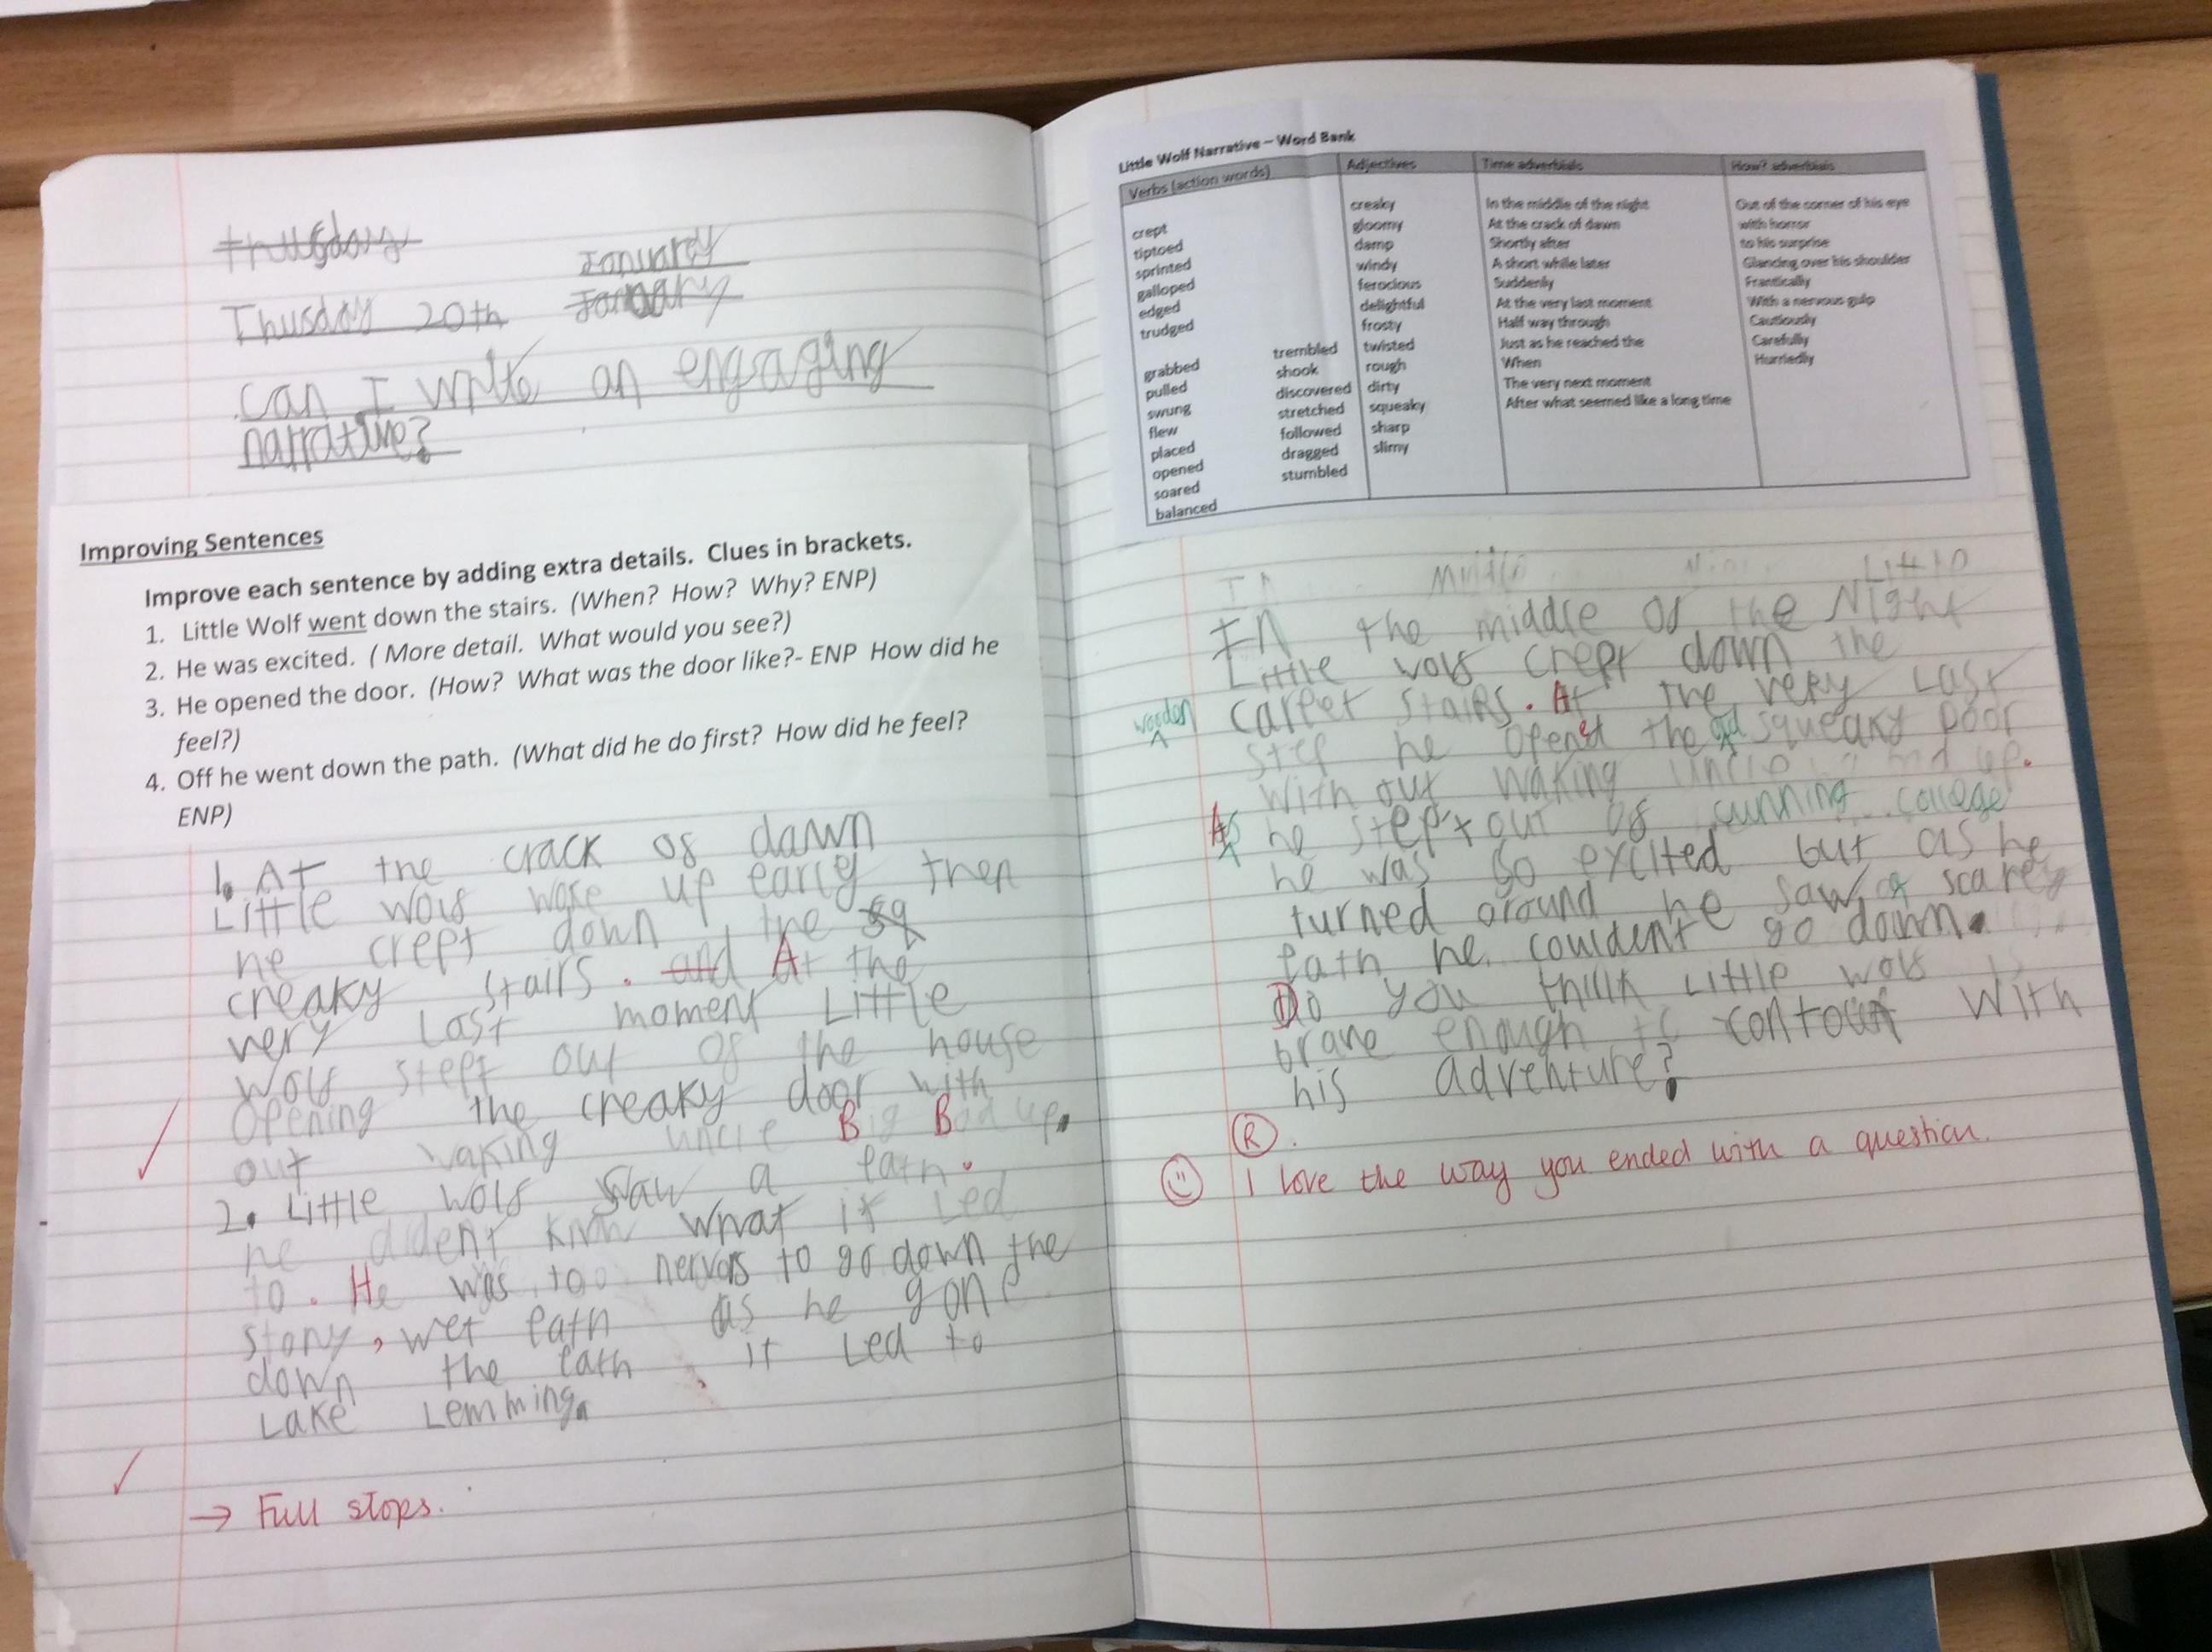 Thursday
January
Thusday 20th January
Can I write an engaging
narrative?
Improving Sentences
Improve each sentence by adding extra details. Clues in brackets.
1. Little Wolf went down the stairs. (When? How? Why? ENP)
2. He was excited. ( More detail. What would you see?)
3. He opened the door. (How? What was the door like?- ENP How did he
feel?)
4. Off he went down the path. (What did he do first? How did he feel?
ENP)
1. At the crack of dawn
Little wolf woke up early then
he crept down the sq
creaky stairs. and At the
very Last moment Little
wolf stept out of the house
Opening the creaky door with
out waking uncle Big Bad up.
2. Little wolf saw a path.
he dident know what it Led
to. He was too nervos to go down the
stony, wet path as he gone
down the path it Led to
Lake Lemming.
→ Full stops.
Little Wolf Narrative – Word Bank
Verbs (action words) Adjectives Time adverbials How? adverbials
crept creaky In the middle of the night Out of the corner of his eye
tiptoed gloomy At the crack of dawn with horror
sprinted damp Shortly after to his surprise
galloped windy A short while later Glancing over his shoulder
edged ferocious Suddenly Frantically
trudged delightful At the very last moment With a nervous gulp
frosty Half way through Cautiously
grabbed trembled twisted Just as he reached the Carefully
pulled shook rough When Hurriedly
swung discovered dirty The very next moment
flew stretched squeaky After what seemed like a long time
placed followed sharp
opened dragged slimy
soared stumbled
balanced
In the middle of the Night
Little wolf crept down the
wooden carpet stairs. At the very Last
step he opened the old squeaky door
With out waking uncle bad up.
As he step't out of cunning college
he was so excited but as he
turned around he saw a scarey
path he couldent go down.
Do you think Little wolf is
brave enough to contouf with
his adventure?
R.
I love the way you ended with a question.